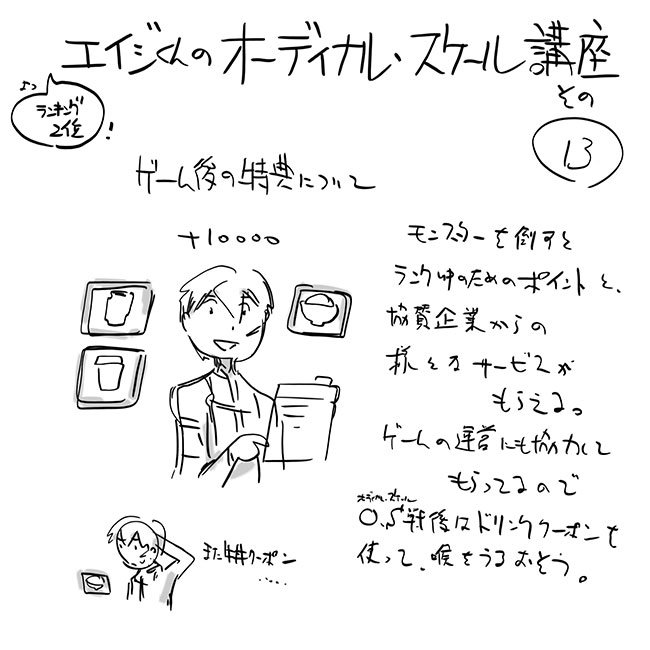 エイジくんのオーディカル・スケール講座
その
13
よっ
ランキング
2位
!
ゲーム後の特典について
+10000
モンスターを倒すと
ランクUPのためのポイントと、
協賛企業からの
様々なサービスが
もらえる。
ゲームの運営にも協力して
もらってるので
オーディカル・スケール
O.S戦後はドリンククーポンを
使って、喉をうるおそう。
また牛丼クーポン
.....